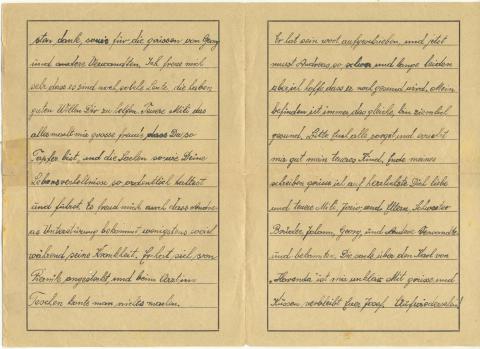 sten dank, sowie für die grissen von Georg
und andern Verwandten. Ich freue mich
sehr dass es sind noch solche Leute, die haben
guten Willen Dir zu helfen. Teuere Mili das
alles macht mir grosse freud, dass Du so
Tapfer bist, und die Sachen sowie Deine
Lebensverhältnisse so ordentlich haltest
und führst. Es freud mich auch dass
Unterstürung bekommt wenigstens soviel
während seine Krankheit. Er hat sich vom
angesteckt, und beim
Teschen konte man nichts machen.
Er hat sein wort aufgeschrieben, und jetzt
must Andreas, so schwer und lange leiden
aber ich hoffe dass er noch gesund wird. Mein
befinden ist immer das gleiche, bin ziemlich
gesund. Bitte Euch alle sorget und
mir gut mein teures Kind, Ende meines
schreiben grisse ich auf herzlichste Dich liebe
und teuere Mili, sowie und Eltern, Schwester
Brüder Johann, Georg, und Andere Verwandte
und bekannten. Die sache über den Karl von
Havenda ist mir unklar. Mit grisse und
Küssen verbleibt Euer Josef. Aufwiedersehen!